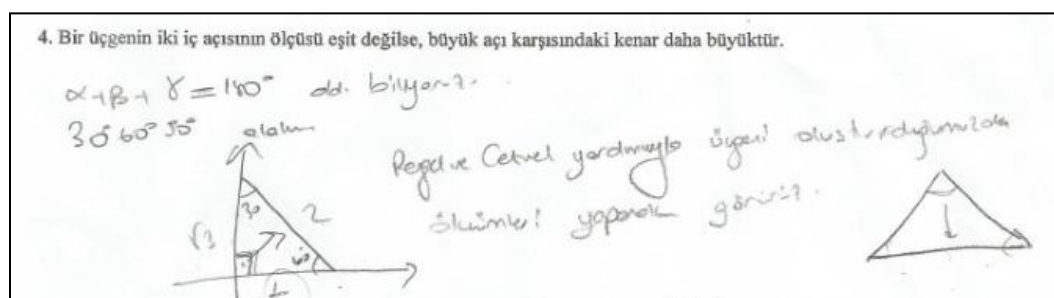 4. Bir üçgenin iki iç açısının ölçüsü eşit değilse, büyük açı karşısındaki kenar daha büyüktür.
α+β+γ=180° old. biliyoruz.
30° 60° 90° alalım
Pergel ve Cetvel yardımıyla üçgeni oluşturduğumuzda
ölçümleri yaparak görürüz.
30
√3
2
60
1